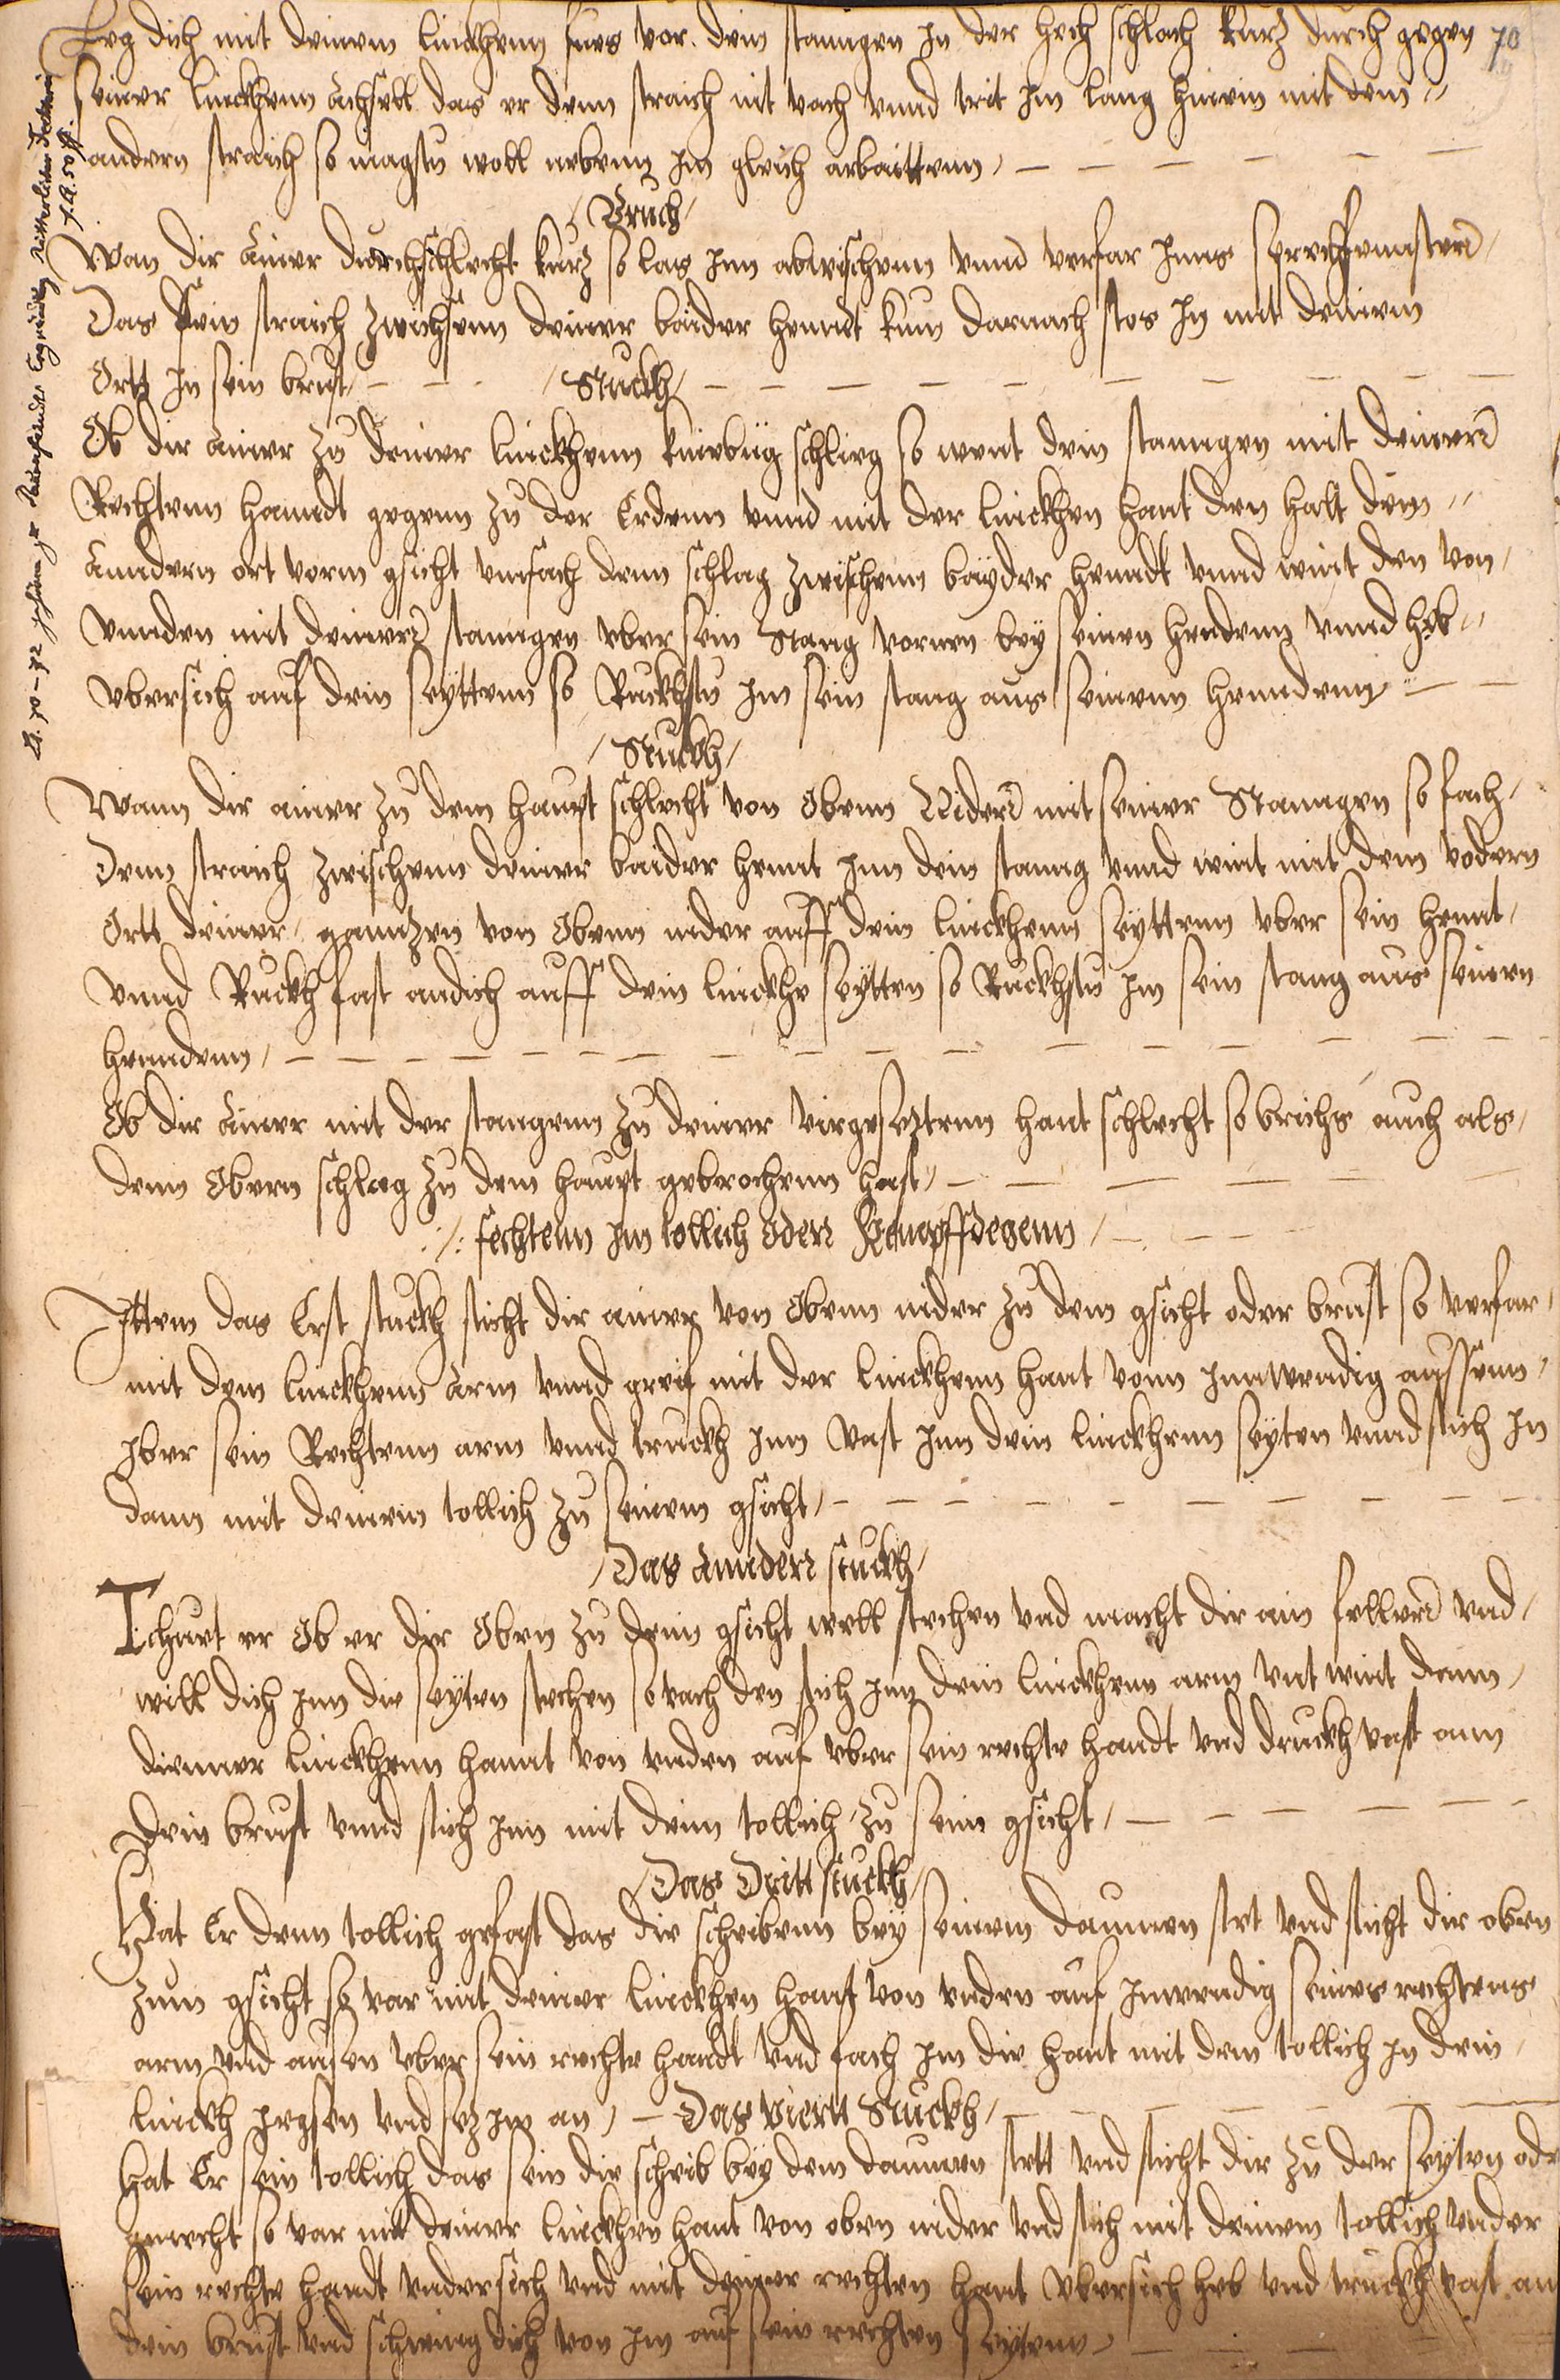 70
Leg dich mit deinem linckhenn fues vor. dein stanngen in der hech schlach kurz durch gegen
seiner linckhenn achsell das er denn straich nit vach vnnd trit im lang hinein mit dem
andern straich so magstu woll nebenn im gleich arbaittenn
Bruch
Wan dir ainer durchschlecht kurz so las inn abwischenn vnnd verfar inns sprechfennster
Das sein straich zwischenn deiner baider henndt kum darnach stos in mit deinem
Ortt in sein brust
Stuckh
Ob dir ainer zu deiner linckhenn kniebüg schlieg so went dein stanngen mit deiner
Rechtenn hanndt gegenn zu der Erdenn vnnd mit der linckhen hant den halt dein
anndern ort vorm gsicht vmfach denn schlag zwischenn bayder henndt vnnd wint den von
vnnden mit deiner stanngen vber sein Stang vornen bey seinen hendenn vnnd heb
vbersich auf dein seyttenn so Ruckhstu im sein stang aus seinenn henndenn
Stuckh
Wann dir ainer zu dem haupt schlecht von Obenn Nider mit seiner Stanngen so fach
Denn straich zwischenn deiner baider hennt inn dein stanng vnnd wint mit dem vodern
Ortt deiner ganntzen von Obenn nider auff dein linckhenn seyttenn vber sein hennt
vnnd Ruckh fast andich auff dein linckhe seytten so Ruckhstu im sein stang aus seinen
henndenn
Ob dir ainer mit der stangenn zu deiner virgesetztenn hant schlecht so brichs auch als
denn Obern schlag zu dem haupt gebrochenn hast
fechtenn im tollich oder Kempffdegenn
Ittem das Erst stuckh sticht dir ainer von Obenn nider zu dem gsicht oder brust so verfar
mit dem linckhenn arm vnnd greif mit der linckhenn hant vonn innwendig aussenn
iber sein Rechtenn arm vnnd truckh inn vast inn dein linckhenn seyten vnnd stich in
dann mit deinem tollich zu seinem gsicht
Das annder stuckh
Tchuet er Ob er dir Oben zu deim gsicht well stechen vnd macht dir ain feller vnd
will dich inn die seyten stechen so vach den stich inn dein linckhenn arm vnt wint dann
diemer linckhenn hannt von vnden auf vber sein rechte handt vnd druckh vast ann
Dein brust vnnd stich inn mit deim tollich zu seim gsicht
Das Dritt stuckh
Hat Er denn tollich gefast das die scheibenn bey seinem daumen stet vnd sticht dir oben
zum gsicht so var mit deiner linckhen hant von vnden auf inwendig seines rechtens
arm vnd ausen vber sein rechte handt vnd fach im die hant mit dem tollich in dein
linckh iegsen vnd setz im an
Das viertt Stuckh
Hat Er sein tollich das sein die scheib bey dem daumen stett vnd sticht dir zu der seyten oder
gmecht so var mit deiner linckhen hant von oben nider vnd stich mit deinem tollich vnder
sein rechte handt vndersich vnd mit deiner rechten hant vbersich heb vnd truckh vast an
dein brust vnd schwing dich von im auf sein rechten seytenn